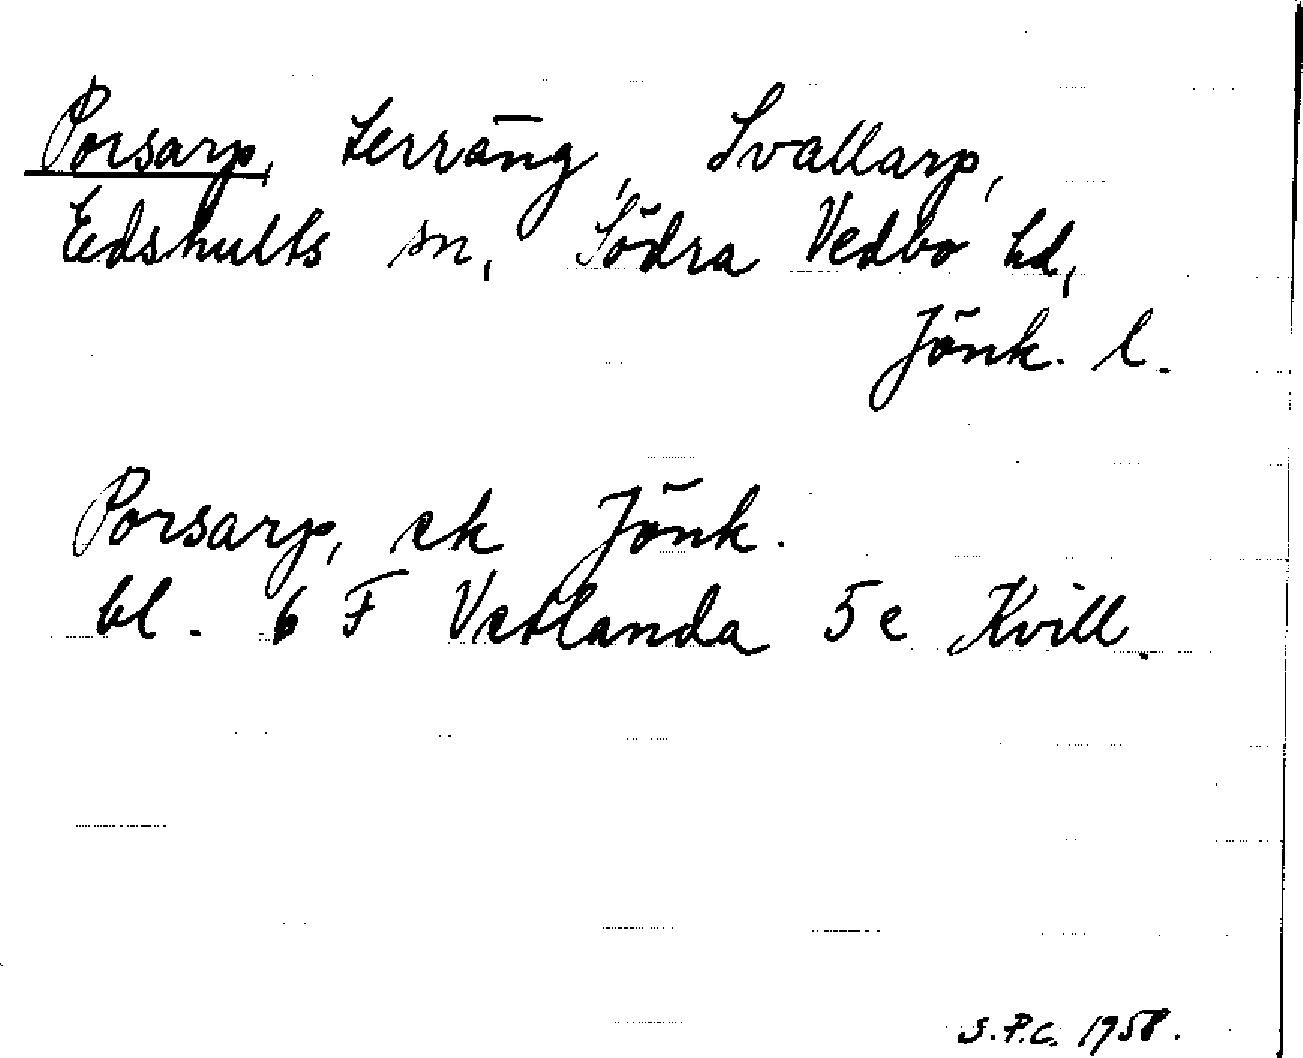 Porsarp, terräng, Svallarp,
Edshults sn, Södra Vedbo hd,
Jönk. l.
Porsarp, ek Jönk.
bl. 6 F Vetlanda 5 e Kvill.
S.P.C. 1958.